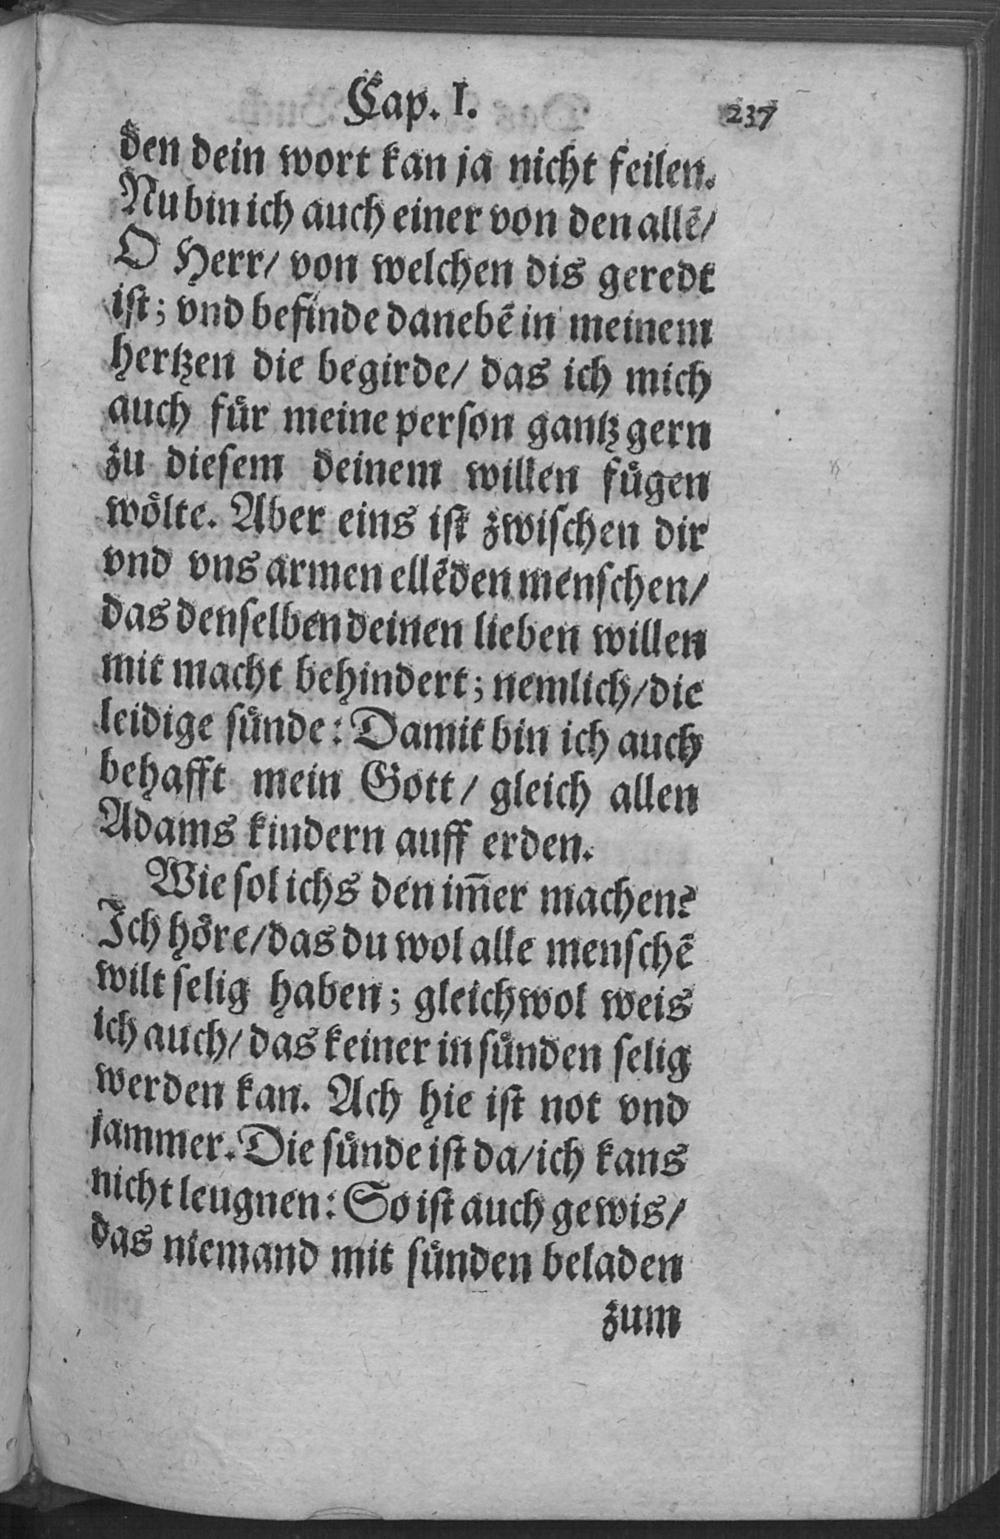 Cap. I.
237
den dein wort kan ja nicht feilen.
Nu bin ich auch einer von den allẽ/
O Herr/ von welchen dis geredt
iſt; vnd befinde danebẽ in meinem
hertzen die begirde/ das ich mich
auch fuͤr meine perſon gantz gern
zu dieſem deinem willen fuͤgen
woͤlte. Aber eins iſt zwiſchen dir
vnd vns armen ellẽden menſchen/
das denſelben deinen lieben willen
mit macht behindert; nemlich/ die
leidige ſuͤnde: Damit bin ich auch
behafft mein Gott/ gleich allen
Adams kindern auff erden.
Wie ſol ichs den im̃er machen?
Ich hoͤre/ das du wol alle menſchẽ
wilt ſelig haben; gleichwol weis
ich auch/ das keiner in ſuͤnden ſelig
werden kan. Ach hie iſt not vnd
jammer. Die ſuͤnde iſt da/ ich kans
nicht leugnen: So iſt auch gewis/
das niemand mit ſuͤnden beladen
zum